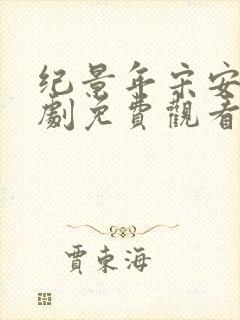 纪景年宋安
劇免費觀看
賈東海